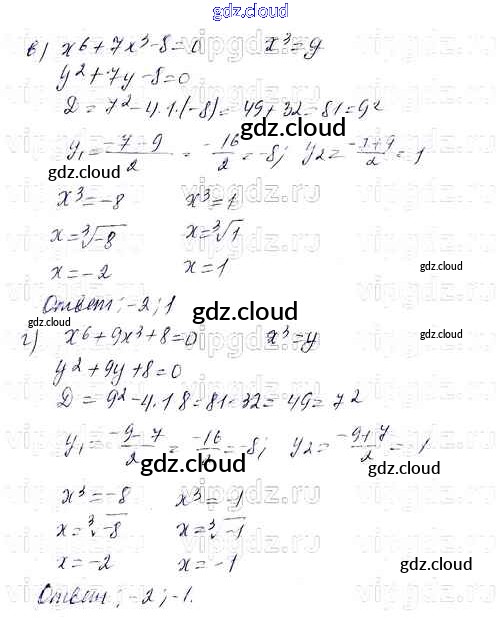 gdz.cloud
в) x⁶+7x³-8=0 x³=y
y²+7y-8=0
D=7²-4.1.(-8)=49+32=81=9²
gdz.cloud
y₁=(-7-9)/2=-16/2=-8; y₂=(-7+9)/2=1
x³=-8 x³=1
gdz.cloud
x=³√-8 x=³√1
x=-2 x=1
gdz.cloud
Ответ: -2; 1
gdz.cloud
gdz.cloud
г) x⁶+9x³+8=0 x³=y
gdz.cloud
y²+9y+8=0
D=9²-4.1.8=81-32=49=7²
y₁=(-9-7)/2=-16/2=-8; y₂=(-9+7)/2=-1
gdz.cloud
gdz.cloud
x³=-8 x³=-1
x=³√-8 x=³√-1
x=-2 x=-1
gdz.cloud
Ответ: -2; -1.